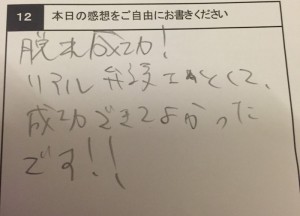 12 本日の感想をご自由にお書きください
脱出成功!
リアル弁護士かとくて、
成功できてよかった
です!!